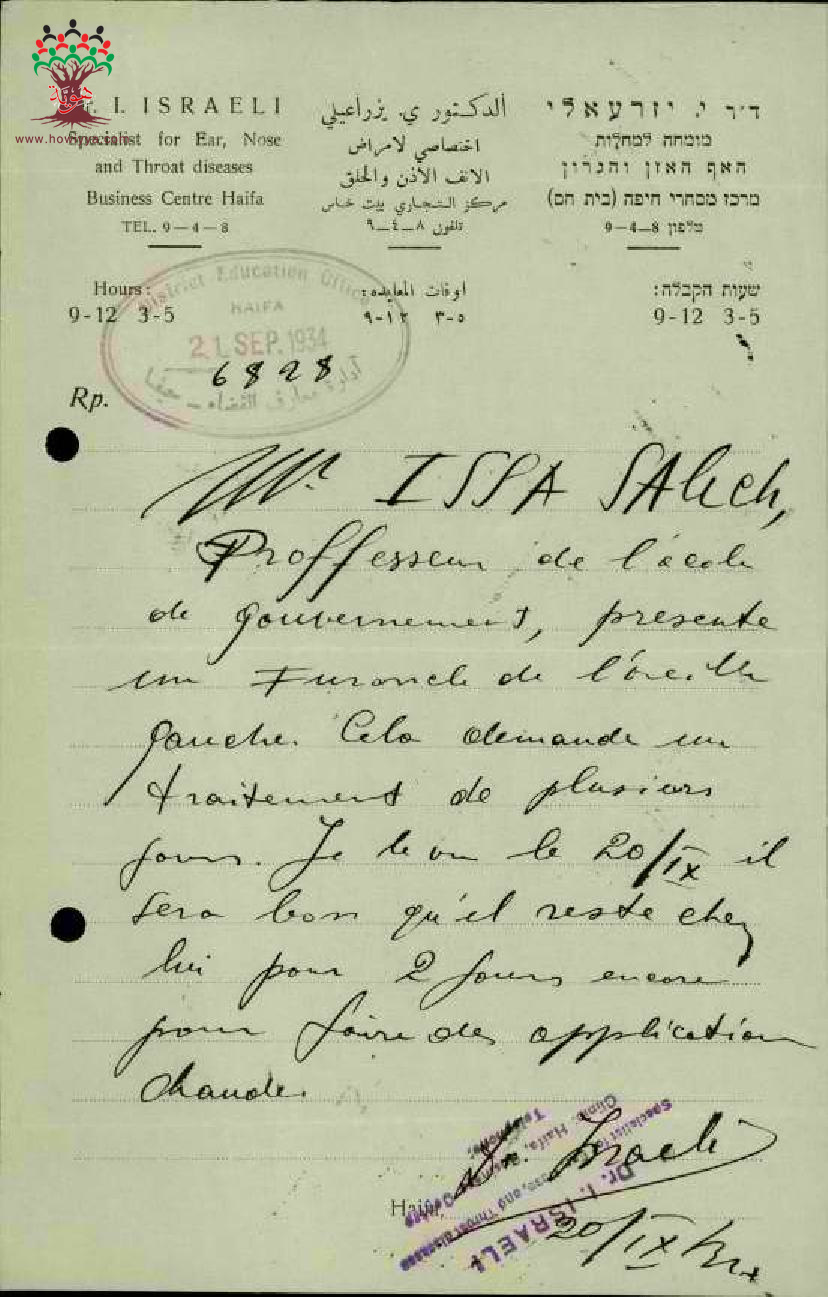 Dr. I. ISRAELI
Specialist for Ear, Nose
and Throat diseases
Business Centre Haifa
TEL. 9-4-8
الدكتور ي. يزراعيلي
اختصاصي لامراض
الانف الاذن والحلق
مركز التجاري بيت خاس
تلفون ٨-٤-٩
ד״ר י. יזרעאלי
מומחה למחלות
האף האזן והגרון
מרכז מסחרי חיפה (בית חס)
טלפון 9-4-8
www.howiyya.com
Hours:
9-12 3-5
اوقات المعايده:
٩-١٢ ٣-٥
שעות הקבלה:
9-12 3-5
District Education Office
HAIFA
21 SEP. 1934
أدارة معارف القضاء - حيفا
6828
Rp.
Mr ISSA SAleh,
Proffesseur de l'école
de gouvernement, presente
un Furoncle de l'oreille
gauche. Cela demande un
traitement de plusiers
jours. Je le vu le 20/IX il
sera bon qu'il reste chez
lui pour 2 jours encore
pour faire des application
chaude.
Dr. Israeli
Haifa,
20/IX
Dr. I. ISRAELI
Specialist for Ear, Nose, and Throat diseases
Clinic: Haifa, Business Centre
Telephone.